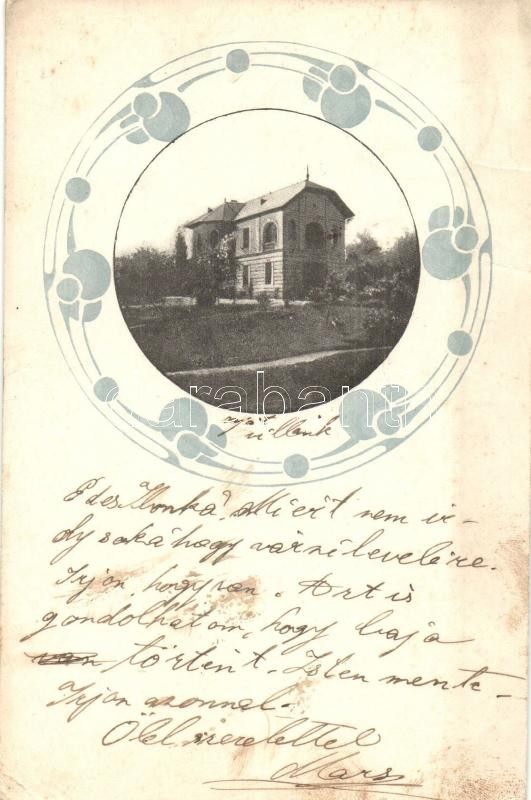 darabanth
itt ülünk
Edes Ilonka! Miért nem ir-
oly soká hagy várni levelére.
Irjon, hogy van. Azt is
gondolhatom, hogy baja
történt. Isten mente-
Irjon azonnal.
Ölel szeretettel